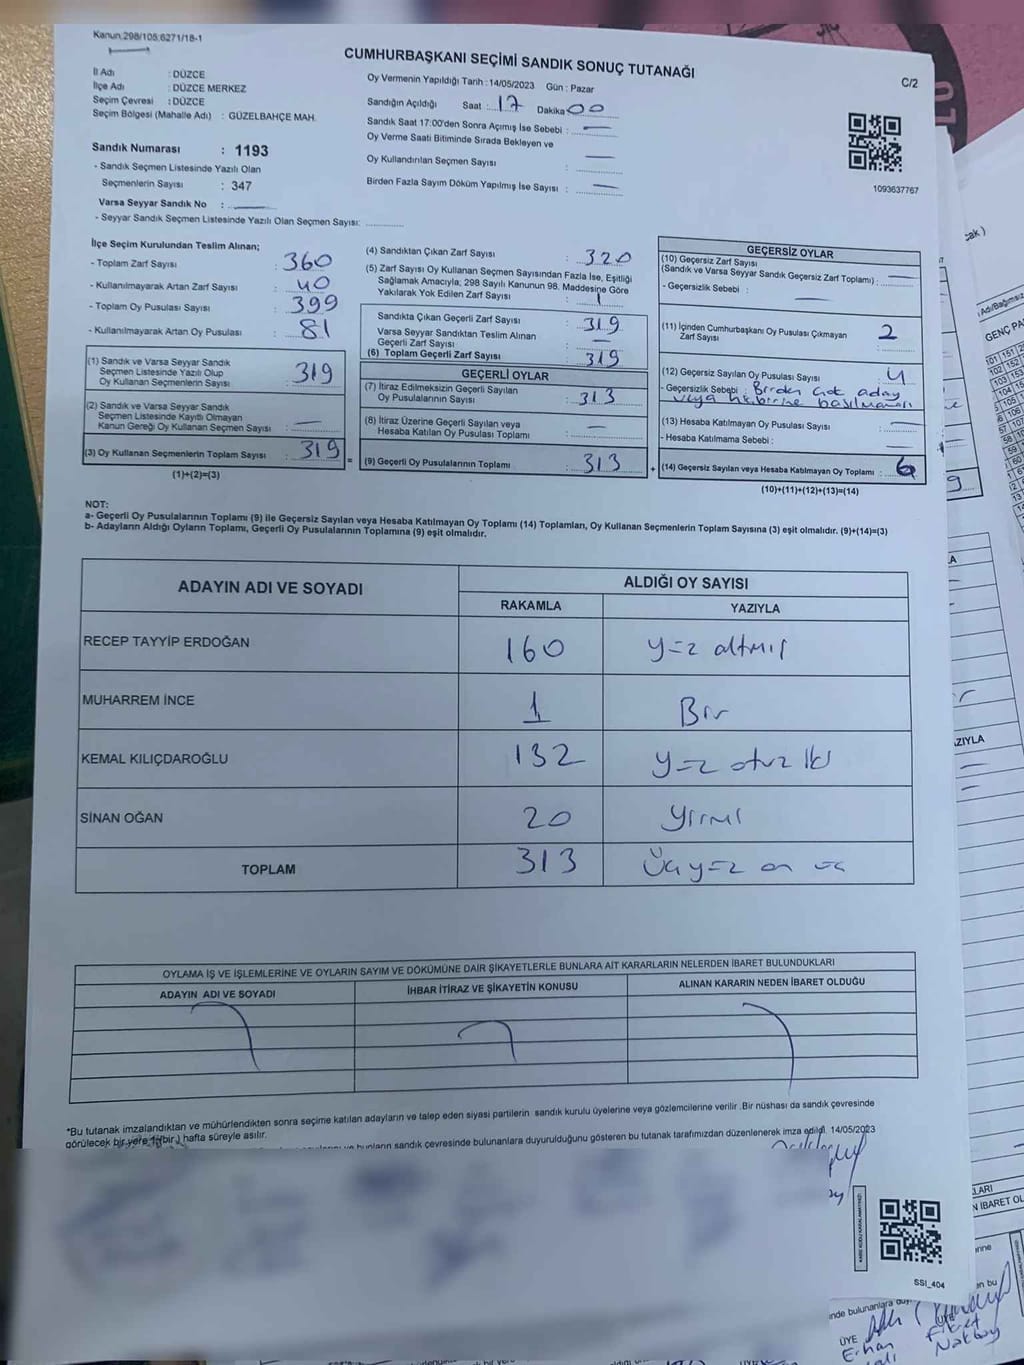 Kanun:298/105;6271/18-1
CUMHURBAŞKANI SEÇİMİ SANDIK SONUÇ TUTANAĞI
C/2
İl Adı : DÜZCE
İlçe Adı : DÜZCE MERKEZ
Seçim Çevresi : DÜZCE
Seçim Bölgesi (Mahalle Adı) : GÜZELBAHÇE MAH.
Sandık Numarası : 1193
- Sandık Seçmen Listesinde Yazılı Olan
Seçmenlerin Sayısı : 347
Varsa Seyyar Sandık No :
- Seyyar Sandık Seçmen Listesinde Yazılı Olan Seçmen Sayısı:
Oy Vermenin Yapıldığı Tarih :14/05/2023 Gün : Pazar
Sandığın Açıldığı Saat : 17 Dakika 00
Sandık Saat 17:00'den Sonra Açılmış İse Sebebi : —
Oy Verme Saati Bitiminde Sırada Bekleyen ve
Oy Kullandırılan Seçmen Sayısı : —
Birden Fazla Sayım Döküm Yapılmış İse Sayısı : —
1093637767
İlçe Seçim Kurulundan Teslim Alınan;
- Toplam Zarf Sayısı : 360
- Kullanılmayarak Artan Zarf Sayısı : 40
- Toplam Oy Pusulası Sayısı : 399
- Kullanılmayarak Artan Oy Pusulası : 81
(1) Sandık ve Varsa Seyyar Sandık
Seçmen Listesinde Yazılı Olup
Oy Kullanan Seçmenlerin Sayısı : 319
(2) Sandık ve Varsa Seyyar Sandık
Seçmen Listesinde Kayıtlı Olmayan
Kanun Gereği Oy Kullanan Seçmen Sayısı : —
(3) Oy Kullanan Seçmenlerin Toplam Sayısı : 319
(1)+(2)=(3)
=
(4) Sandıktan Çıkan Zarf Sayısı : 320
(5) Zarf Sayısı Oy Kullanan Seçmen Sayısından Fazla İse, Eşitliği
Sağlamak Amacıyla, 298 Sayılı Kanunun 98. Maddesine Göre
Yakılarak Yok Edilen Zarf Sayısı : 1
Sandıkta Çıkan Geçerli Zarf Sayısı : 319
Varsa Seyyar Sandıktan Teslim Alınan
Geçerli Zarf Sayısı : —
(6) Toplam Geçerli Zarf Sayısı : 319
GEÇERLİ OYLAR
(7) İtiraz Edilmeksizin Geçerli Sayılan
Oy Pusulalarının Sayısı : 313
(8) İtiraz Üzerine Geçerli Sayılan veya
Hesaba Katılan Oy Pusulası Toplamı : —
(9) Geçerli Oy Pusulalarının Toplamı : 313
+
GEÇERSİZ OYLAR
(10) Geçersiz Zarf Sayısı
(Sandık ve Varsa Seyyar Sandık Geçersiz Zarf Toplamı) : —
- Geçersizlik Sebebi : —
(11) İçinden Cumhurbaşkanı Oy Pusulası Çıkmayan
Zarf Sayısı : 2
(12) Geçersiz Sayılan Oy Pusulası Sayısı : 4
- Geçersizlik Sebebi : Birden çok aday
veya hiçbirine basılmaması
(13) Hesaba Katılmayan Oy Pusulası Sayısı : —
- Hesaba Katılmama Sebebi : —
(14) Geçersiz Sayılan veya Hesaba Katılmayan Oy Toplamı : 6
(10)+(11)+(12)+(13)=(14)
NOT:
a- Geçerli Oy Pusulalarının Toplamı (9) ile Geçersiz Sayılan veya Hesaba Katılmayan Oy Toplamı (14) Toplamları, Oy Kullanan Seçmenlerin Toplam Sayısına (3) eşit olmalıdır. (9)+(14)=(3)
b- Adayların Aldığı Oyların Toplamı, Geçerli Oy Pusulalarının Toplamına (9) eşit olmalıdır.
ADAYIN ADI VE SOYADI
ALDIĞI OY SAYISI
RAKAMLA YAZIYLA
RECEP TAYYİP ERDOĞAN 160 Yüz altmış
MUHARREM İNCE 1 Bir
KEMAL KILIÇDAROĞLU 132 Yüz otuz İki
SİNAN OĞAN 20 Yirmi
TOPLAM 313 Üçyüz on üç
OYLAMA İŞ VE İŞLEMLERİNE VE OYLARIN SAYIM VE DÖKÜMÜNE DAİR ŞİKAYETLERLE BUNLARA AİT KARARLARIN NELERDEN İBARET BULUNDUKLARI
ADAYIN ADI VE SOYADI İHBAR İTİRAZ VE ŞİKAYETİN KONUSU ALINAN KARARIN NEDEN İBARET OLDUĞU
*Bu tutanak imzalandıktan ve mühürlendikten sonra seçime katılan adayların ve talep eden siyasi partilerin sandık kurulu üyelerine veya gözlemcilerine verilir. Bir nüshası da sandık çevresinde
görülecek bir yere 1 (bir) hafta süreyle asılır.
bunların sandık çevresinde bulunanlara duyurulduğunu gösteren bu tutanak tarafımızdan düzenlenerek imza edildi. 14/05/2023
SSI_404
GENÇ PA
YAZIYLA
N İBARET OL
inde bulunanlara
ÜYE
Erhan
ÜYE
Fikret